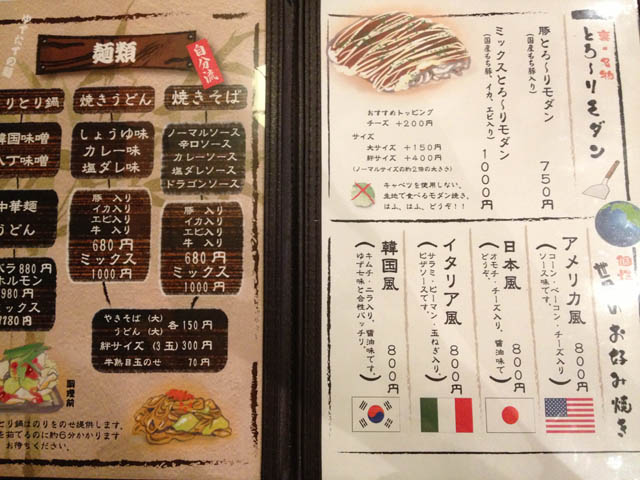 ゆでたての麺
麺類
自分流
りとり鍋
焼きうどん
焼きそば
韓国味噌
八丁味噌
しょうゆ味
カレー味
塩ダレ味
ノーマルソース
辛口ソース
カレーソース
塩ダレソース
ドラゴンソース
中華麺
うどん
豚 入り
イカ入り
エビ入り
牛 入り
680円
ミックス
1000円
豚 入り
イカ入り
エビ入り
牛 入り
680円
ミックス
1000円
バラ 880円
ホルモン
980円
ミックス
やきそば (大)
うどん (大)
各150円
絆サイズ (3玉) 300円
半熟目玉のせ 70円
調理前
とり鍋はのりをのせ提供します。
を茹でるのに約6分かかります
お待ちください。
名物
とろ〜リモダン
豚とろ〜リモダン
(国産もち豚入り)
750円
ミックスとろ〜リモダン
(国産もち豚、イカ、エビ入り)
1000円
おすすめトッピング
チーズ +200円
サイズ
大サイズ +150円
絆サイズ +400円
(ノーマルサイズの約2倍の大きさ)
キャベツを使用しない、
生地で食べるモダン焼き。
はふ、はふ、どうぞ!!
個性
お好み焼き
アメリカ風
800円
(コーン・ベーコン・チーズ入り
ソース味です。)
日本風
800円
(オモチ・チーズ入り、醤油味で
どうぞ。)
イタリア風
800円
(サラミ・ピーマン・玉ねぎ入り。
ピザソースです。)
韓国風
800円
(キムチ・ニラ入り、醤油味です。
ゆず七味と合性バッチリ。)